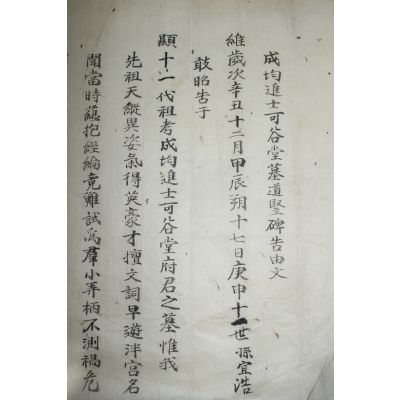 成均進士可谷堂墓道竪碑告由文
維歲次辛丑十二月甲辰朔十七日庚申十一世孫宜浩
敢昭告于
顯十二代祖考成均進士可谷堂府君之墓惟我
先祖天縱異姿氣得英豪才擅文詞早遊泮宮名
聞當時蘊抱經綸竟難試爲羣小弄柄不測禍危